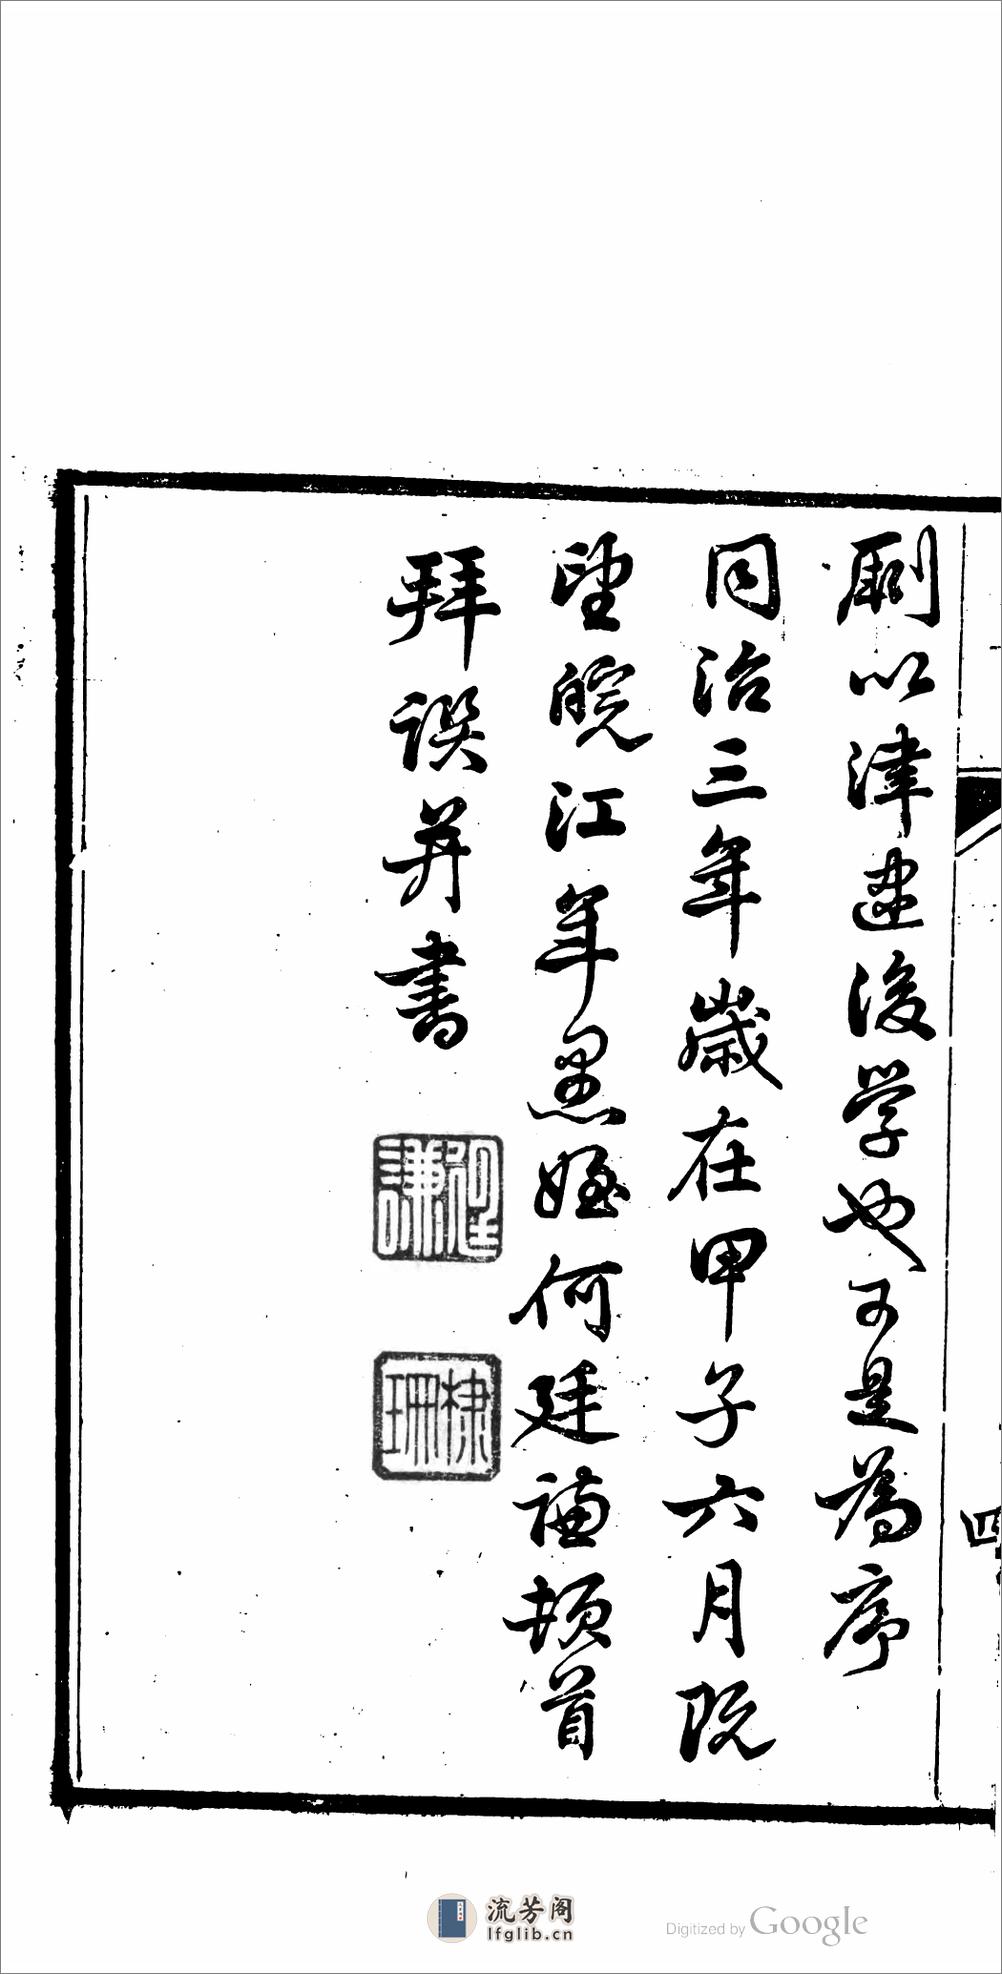 劂以津逮後學也可是為序
同治三年歲在甲子六月既
望皖江年愚姪何廷謙頓首
拜譔并書
廷謙
棣珊
四
流芳阁
lfglib.cn
Digitized by Google